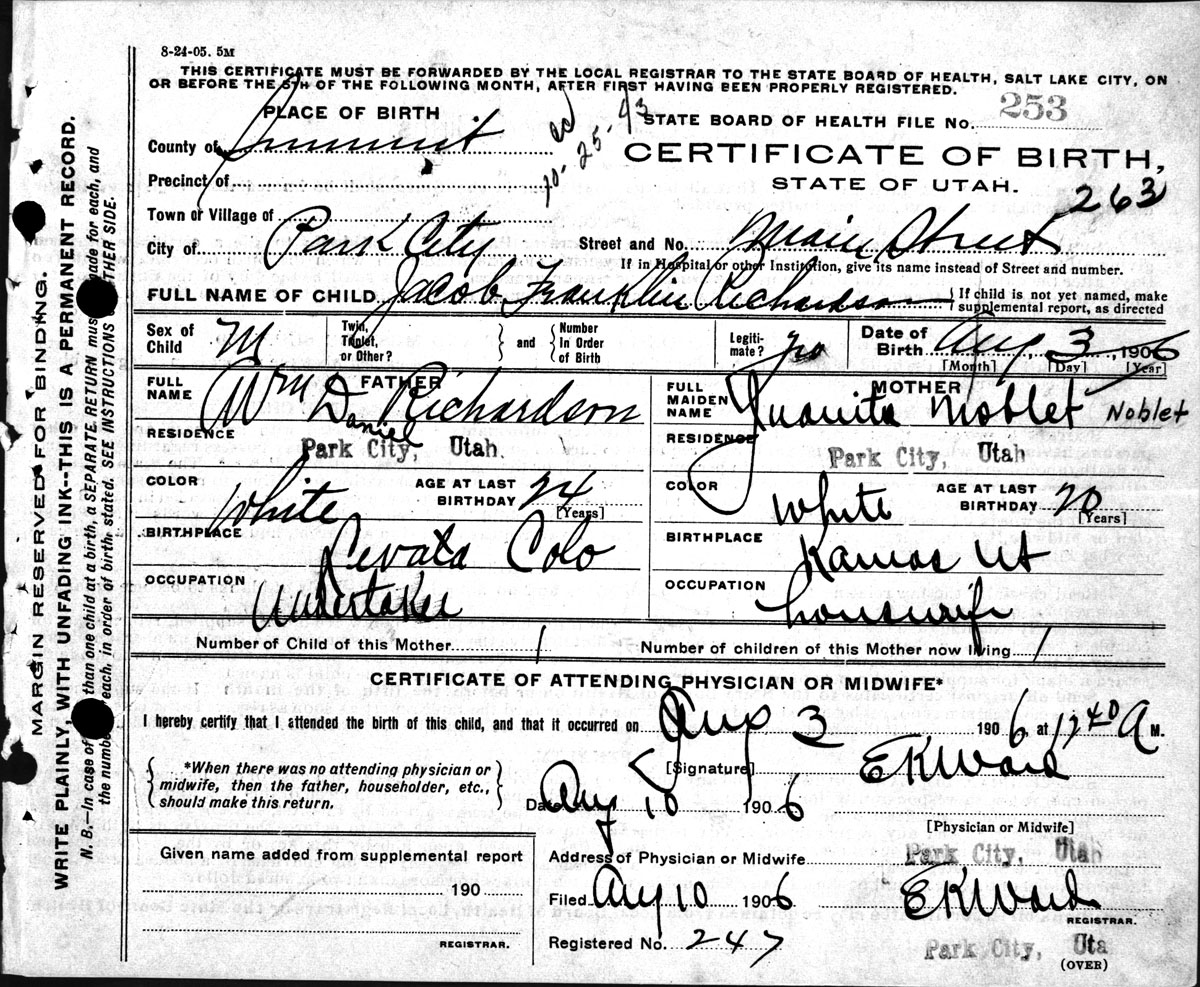 8-24-05. 5M
THIS CERTIFICATE MUST BE FORWARDED BY THE LOCAL REGISTRAR TO THE STATE BOARD OF HEALTH, SALT LAKE CITY, ON
OR BEFORE THE 5TH OF THE FOLLOWING MONTH, AFTER FIRST HAVING BEEN PROPERLY REGISTERED.
PLACE OF BIRTH
STATE BOARD OF HEALTH FILE No. 253
County of Summit
10-25-43
CERTIFICATE OF BIRTH,
Precinct of
STATE OF UTAH.
263
Town or Village of
City of Park City Street and No. Main Street
If in Hospital or other Institution, give its name instead of Street and number.
FULL NAME OF CHILD Jacob Franklin Richardson { If child is not yet named, make supplemental report, as directed
Sex of Child M Twin, Triplet, or Other? } and { Number In Order of Birth Legiti-mate? Date of Birth Aug 3, 1906
[Month] [Day] [Year]
FATHER
FULL NAME Wm D Richardson
Daniel
RESIDENCE Park City, Utah.
COLOR White AGE AT LAST BIRTHDAY 24
[Years]
BIRTHPLACE Colo
OCCUPATION Undertaker
MOTHER
FULL MAIDEN NAME Juanita Noblet Noblet
RESIDENCE Park City, Utah
COLOR White AGE AT LAST BIRTHDAY 20
[Years]
BIRTHPLACE Kamas Ut
OCCUPATION housewife
Number of Child of this Mother 1 Number of children of this Mother now living 1
CERTIFICATE OF ATTENDING PHYSICIAN OR MIDWIFE*
I hereby certify that I attended the birth of this child, and that it occurred on Aug 3 1906, at 1240 A M.
{ *When there was no attending physician or
midwife, then the father, householder, etc.,
should make this return. }
[Signature] E K Ward
Date Aug 10 1906
[Physician or Midwife]
Given name added from supplemental report
190
REGISTRAR.
Address of Physician or Midwife Park City, Utah
Filed Aug 10 1906 E K Ward
REGISTRAR.
Registered No. 247 Park City, Uta
(OVER)
MARGIN RESERVED FOR BINDING.
WRITE PLAINLY, WITH UNFADING INK--THIS IS A PERMANENT RECORD.
N. B.—In case of than one child at a birth, a SEPARATE RETURN mus made for each, and
the numb each, in order of birth, stated. SEE INSTRUCTIONS THER SIDE.